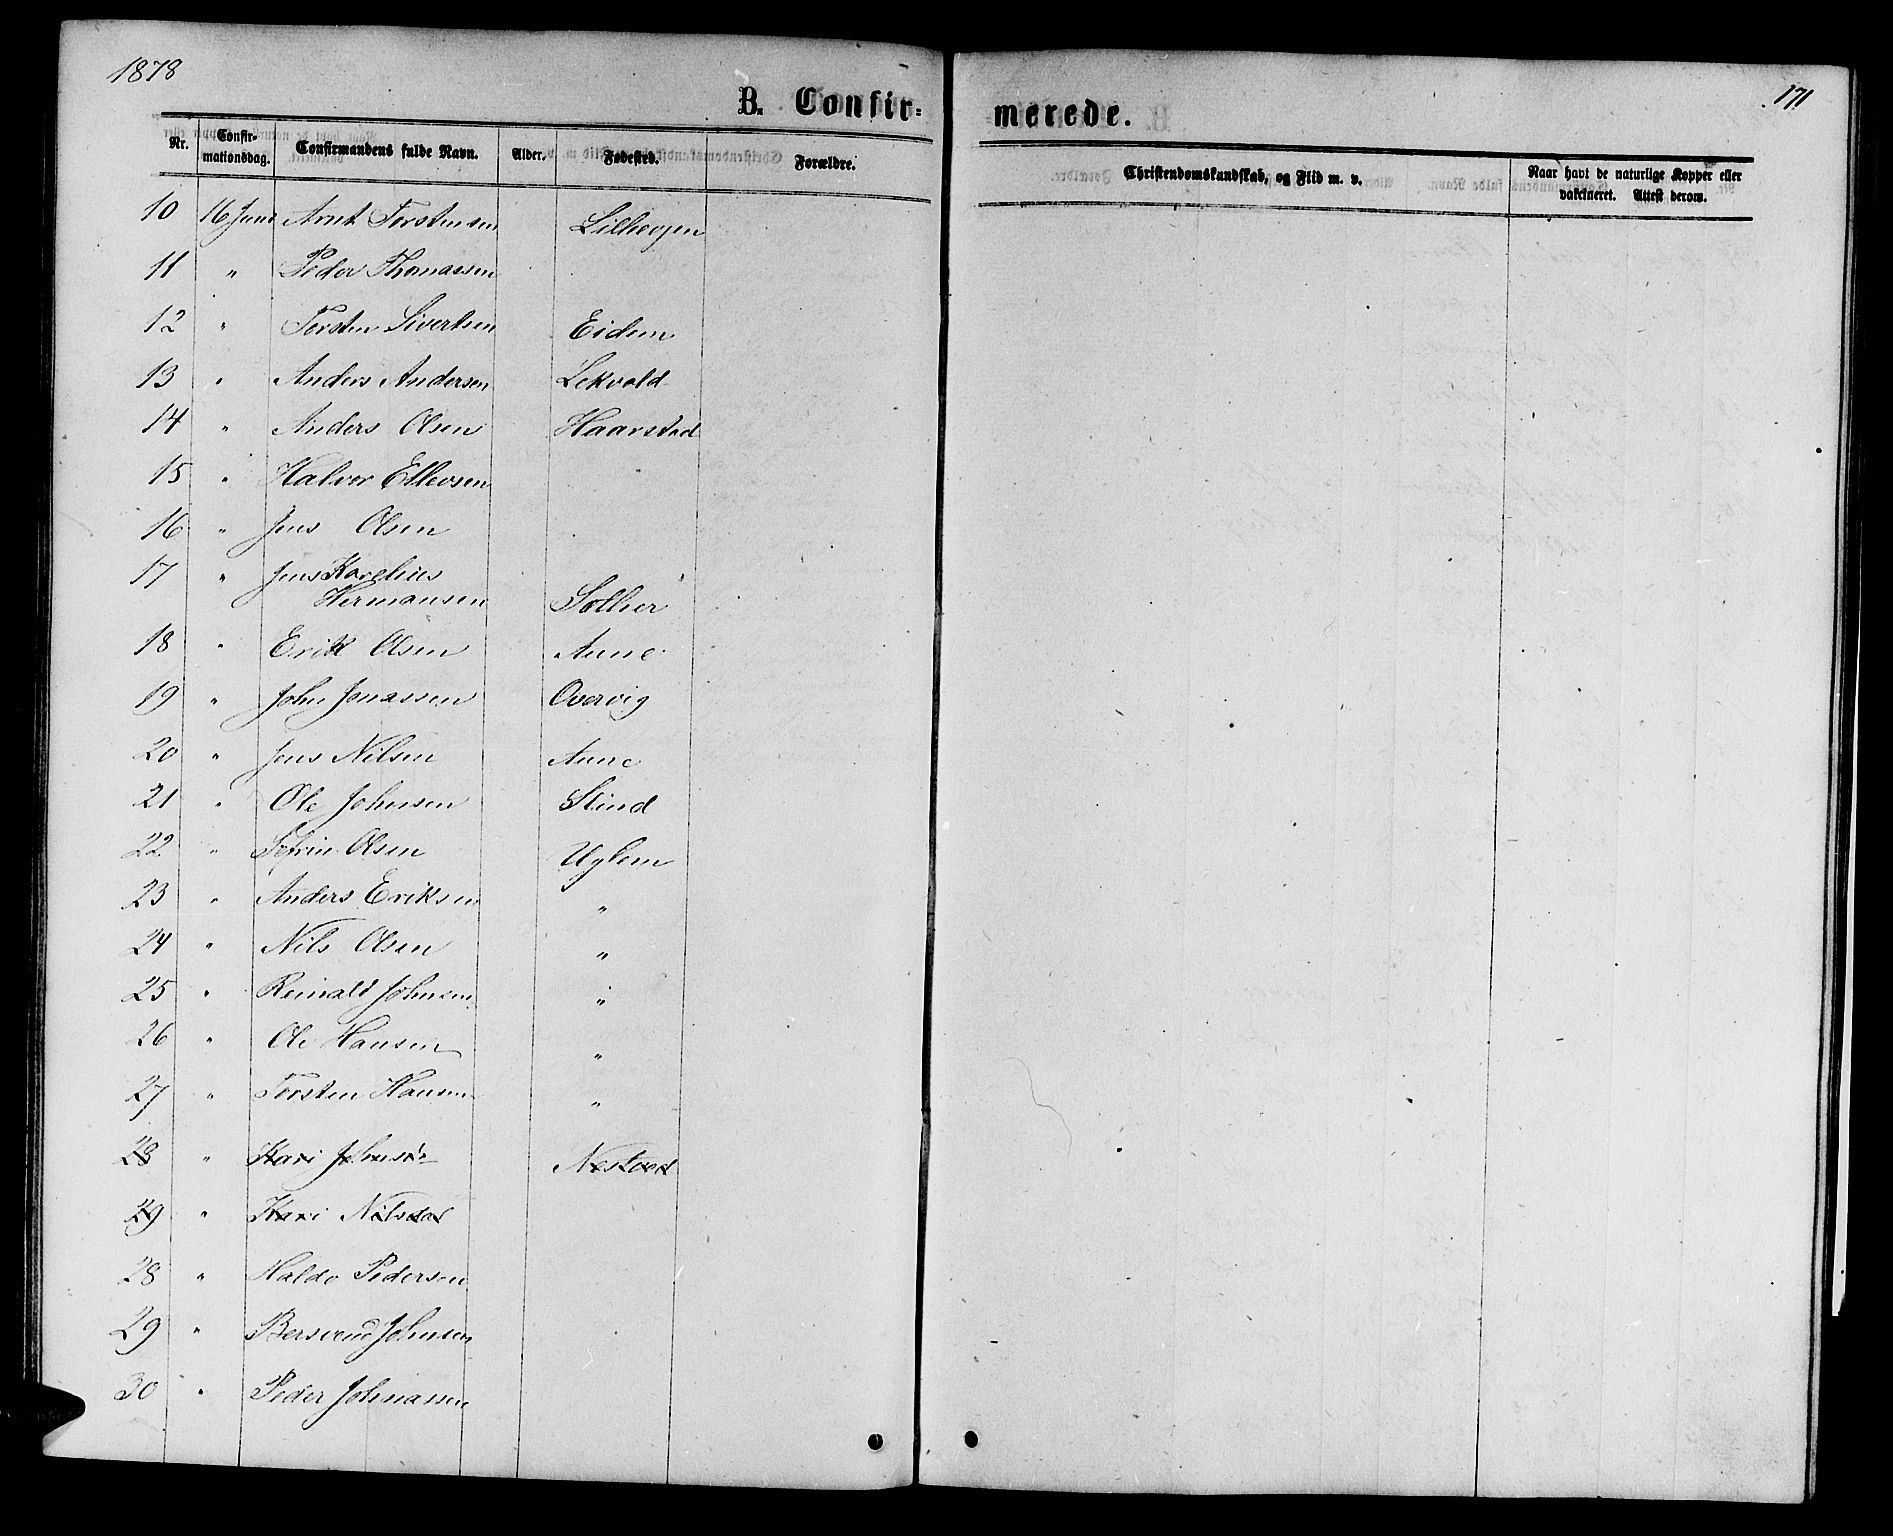 1878
171
B. Confir-
merede.
Nr. Confir-mationsdag. Confirmandens fulde Navn. Alder. Fødested. Forældre. Christendomskundskab, og Flid m. v. Naar havt de naturlige Kopper eller vakcineret. Attest derom.
10 16 Juni Arnt Torstensen Lilleevjen
11 " Peder Thomassen
12 " Torsten Sivertsen Eidem
13 " Anders Andersen Lekvold
14 " Anders Olsen Haarstad
15 " Halvor Ellevsen
16 " Jens Olsen
17 " Jens Karelius
Hermansen Solher
18 " Erik Olsen Aune
19 " John Jonassen Overvig
20 " Jens Nilsen Aune
21 " Ole Johnsen Slind
22 " Olsen Uglem
23 " Anders Eriksen "
24 " Nils Olsen "
25 " Reinald Johnsen "
26 " Ole Hansen "
27 " Torsten Hansen "
28 " Kari Johnsdr Nestvod
29 " Kari Nilsdat
28 " Haldo Pedersen
29 " Bersvend Johnsen
30 " Peder Johnassen